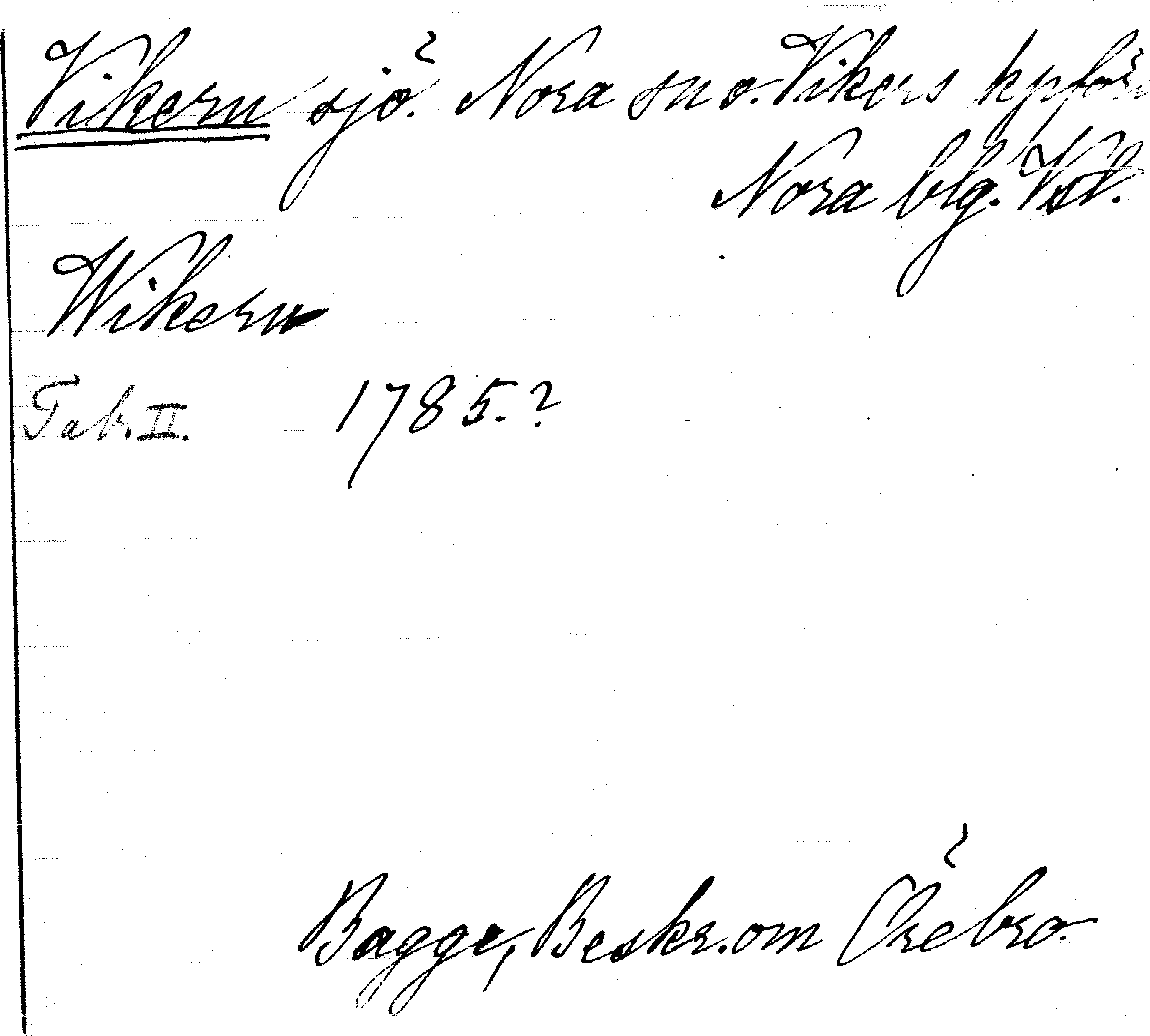 Vikern sjö. Nora sn o. Vikers kpför.
Nora blg. Vstl.
Wikern
Tab. II. 1785.?
Bagge, Beskr. om Örebro.